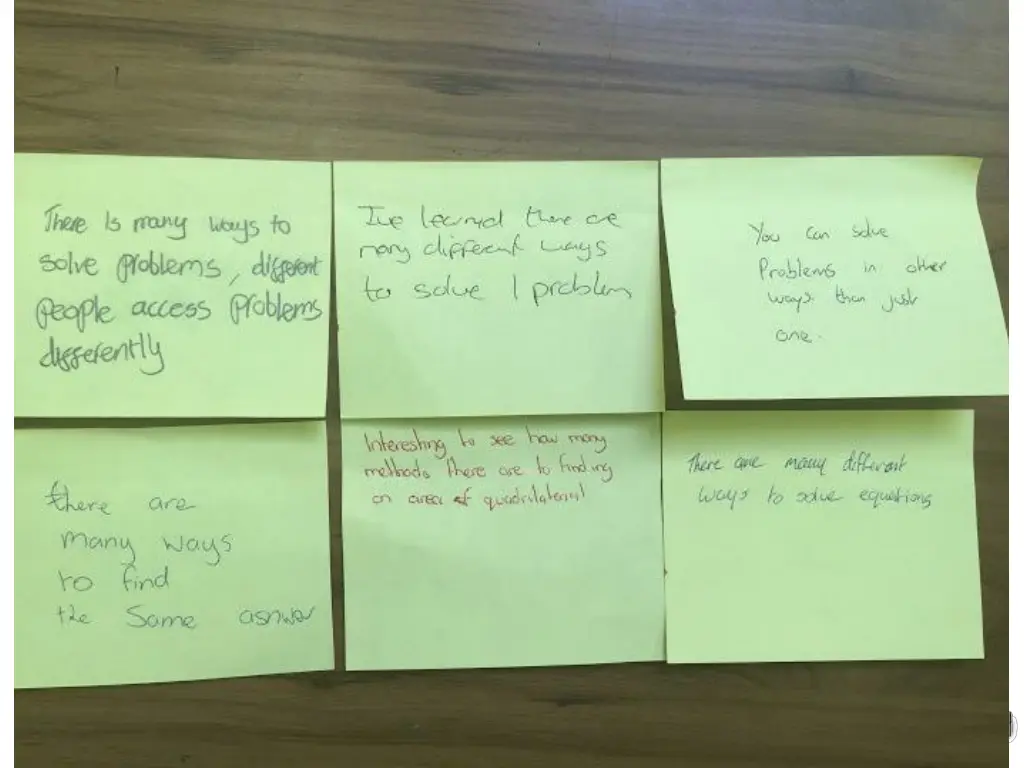 There Is many ways to
solve problems, different
people access problems
differently
I've learned there are
many different ways
to solve 1 problem
You can solve
Problems in other
ways than just
one.
there are
many ways
to find
the Same asnwer
Interesting to see how many
methods there are to finding
an area of quadrilateral
There are many different
ways to solve equations